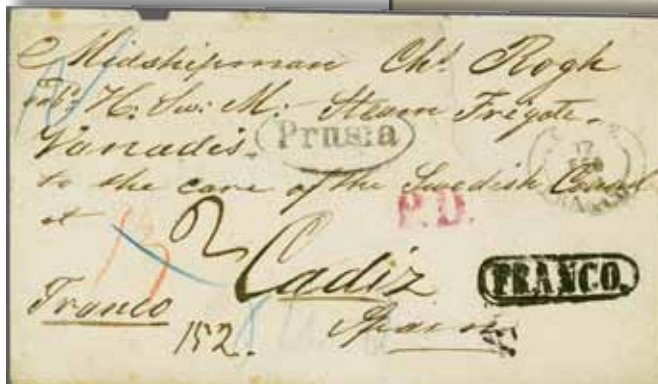 Midshipman Chs. Rogh
H: Sw: M: Steam Frigate.
Vanadis.
Prusia
to the care of the Swedish Consul
at
P.D.
17
Cadiz
FRANCO.
Franco
Spain
152.